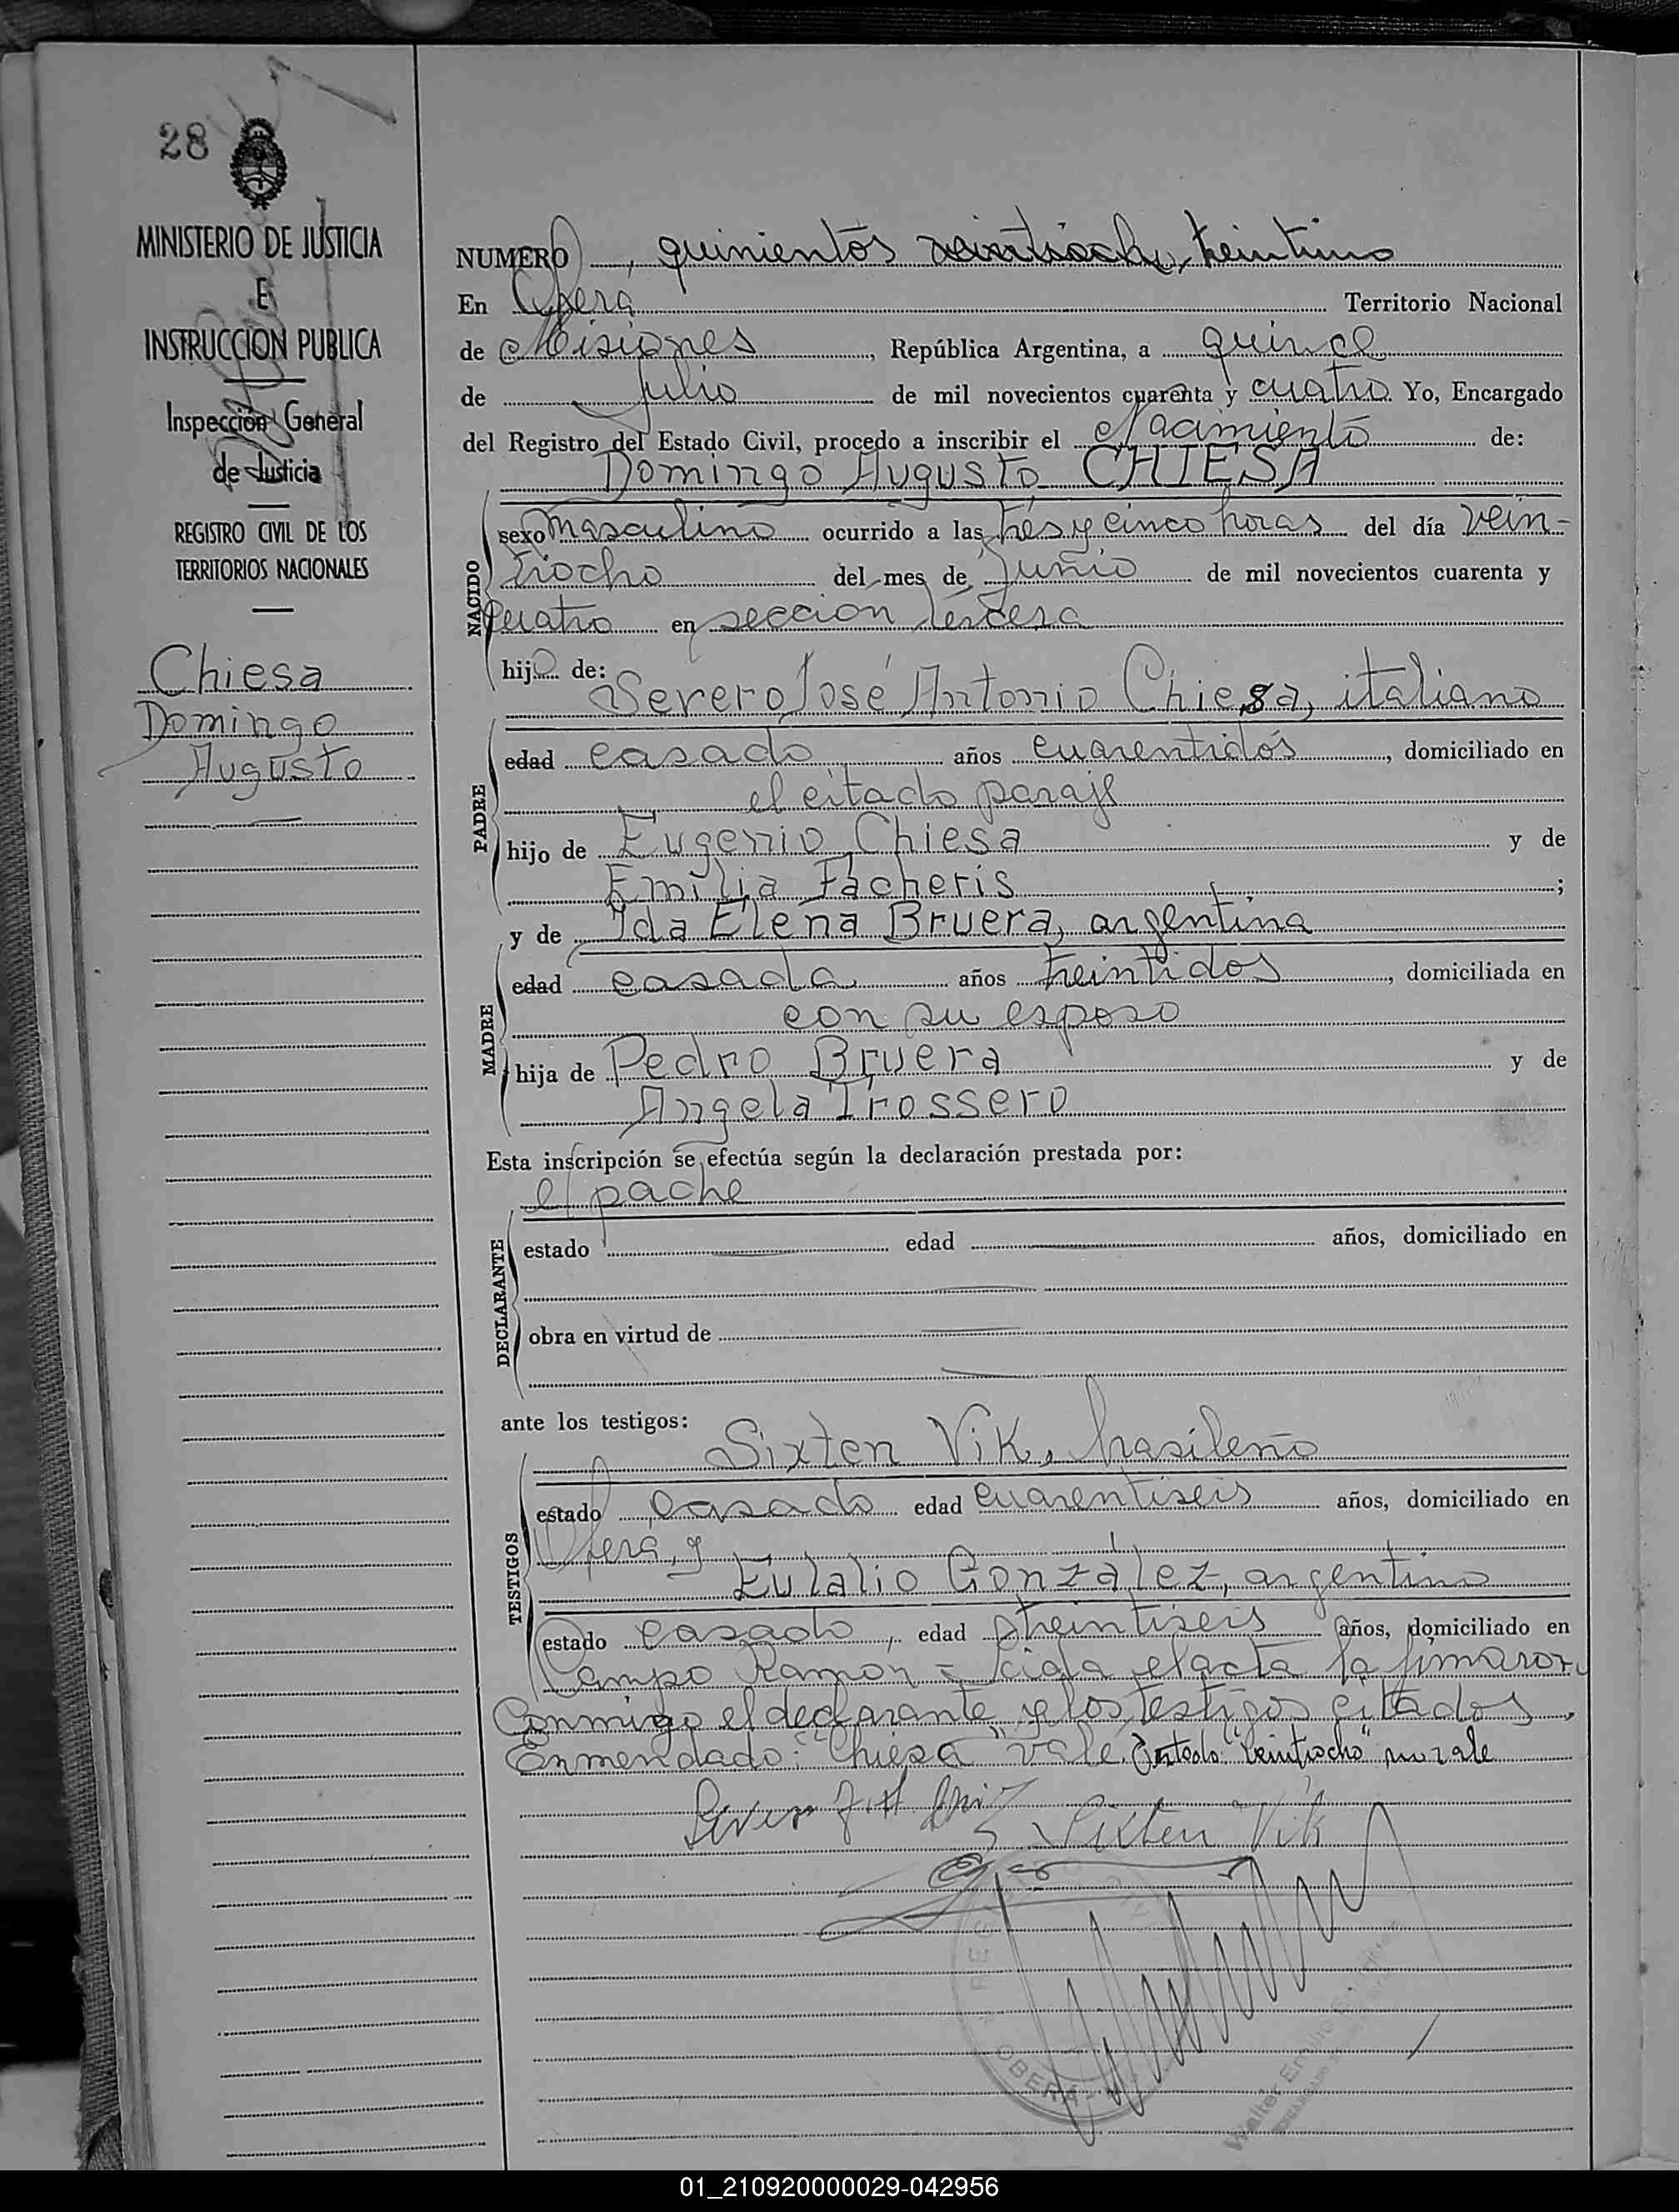 28
MINISTERIO DE JUSTICIA
E
INSTRUCCION PUBLICA
Inspección General
de Justicia
REGISTRO CIVIL DE LOS
TERRITORIOS NACIONALES
Chiesa
Domingo
Augusto
NUMERO, quinientos veintiocho, treintiuno
En Obera Territorio Nacional
de Misiones, República Argentina, a quince
de Julio de mil novecientos cuarenta y cuatro Yo, Encargado
del Registro del Estado Civil, procedo a inscribir el Nacimiento de:
Domingo Augusto CHIESA
NACIDO
sexo masculino ocurrido a las tres y cinco horas del día vein-
tiocho del mes de Junio de mil novecientos cuarenta y
cuatro en seccion tercera
hijo de:
Severo José Antonio Chiesa, italiano
PADRE
edad casado años cuarentidós, domiciliado en
el citado paraje
hijo de Eugenio Chiesa y de
Emilia Facheris;
y de Ida Elena Bruera, argentina
MADRE
edad casada años treintidos, domiciliada en
con su esposo
hija de Pedro Bruera y de
Angela Trossero
Esta inscripción se efectúa según la declaración prestada por:
el padre
DECLARANTE
estado edad años, domiciliado en
obra en virtud de
ante los testigos:
Sixten Vik, brasileño
TESTIGOS
estado casado edad cuarentiseis años, domiciliado en
Obera, y
Eulalio González, argentino
estado casado, edad treintiseis años, domiciliado en
Campo Ramón = Leida el acta la firmaron
Conmigo el declarante y los testigos citados.
Enmendado: "Chiesa" Vale. Testado: "veintiocho" no vale
Sixten Vik
REG
OBERA
Walter
01_210920000029-042956